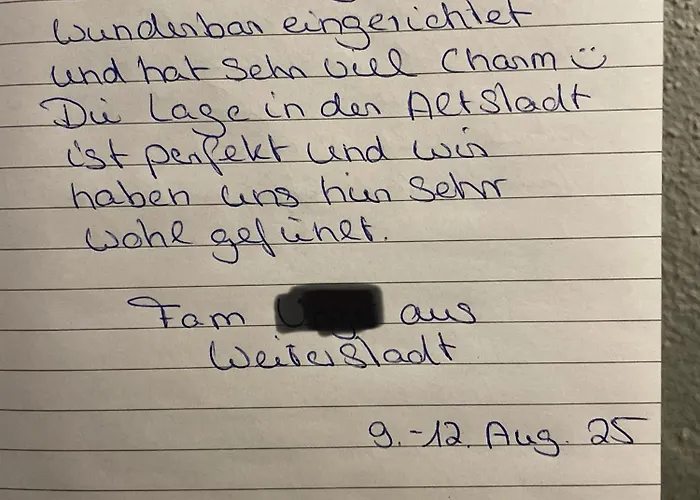 wunderbar eingerichtet
und hat sehr viel Charm ☺
Die Lage in der Altstadt
ist perfekt und wir
haben uns hier sehr
wohl gefühlt.
Fam aus
Weiterstadt
9.-12. Aug. 25